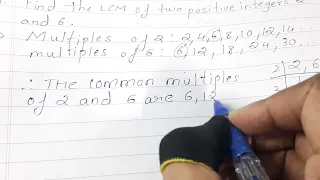 Find the LCM of two positive integers 2
and 6.
Multiples of 2: 2,4,6,8,10,12,14...
multiples of 6: 6,12,18,24,30...
∴ The common multiples
of 2 and 6 are 6,12
2 2,6
3 1